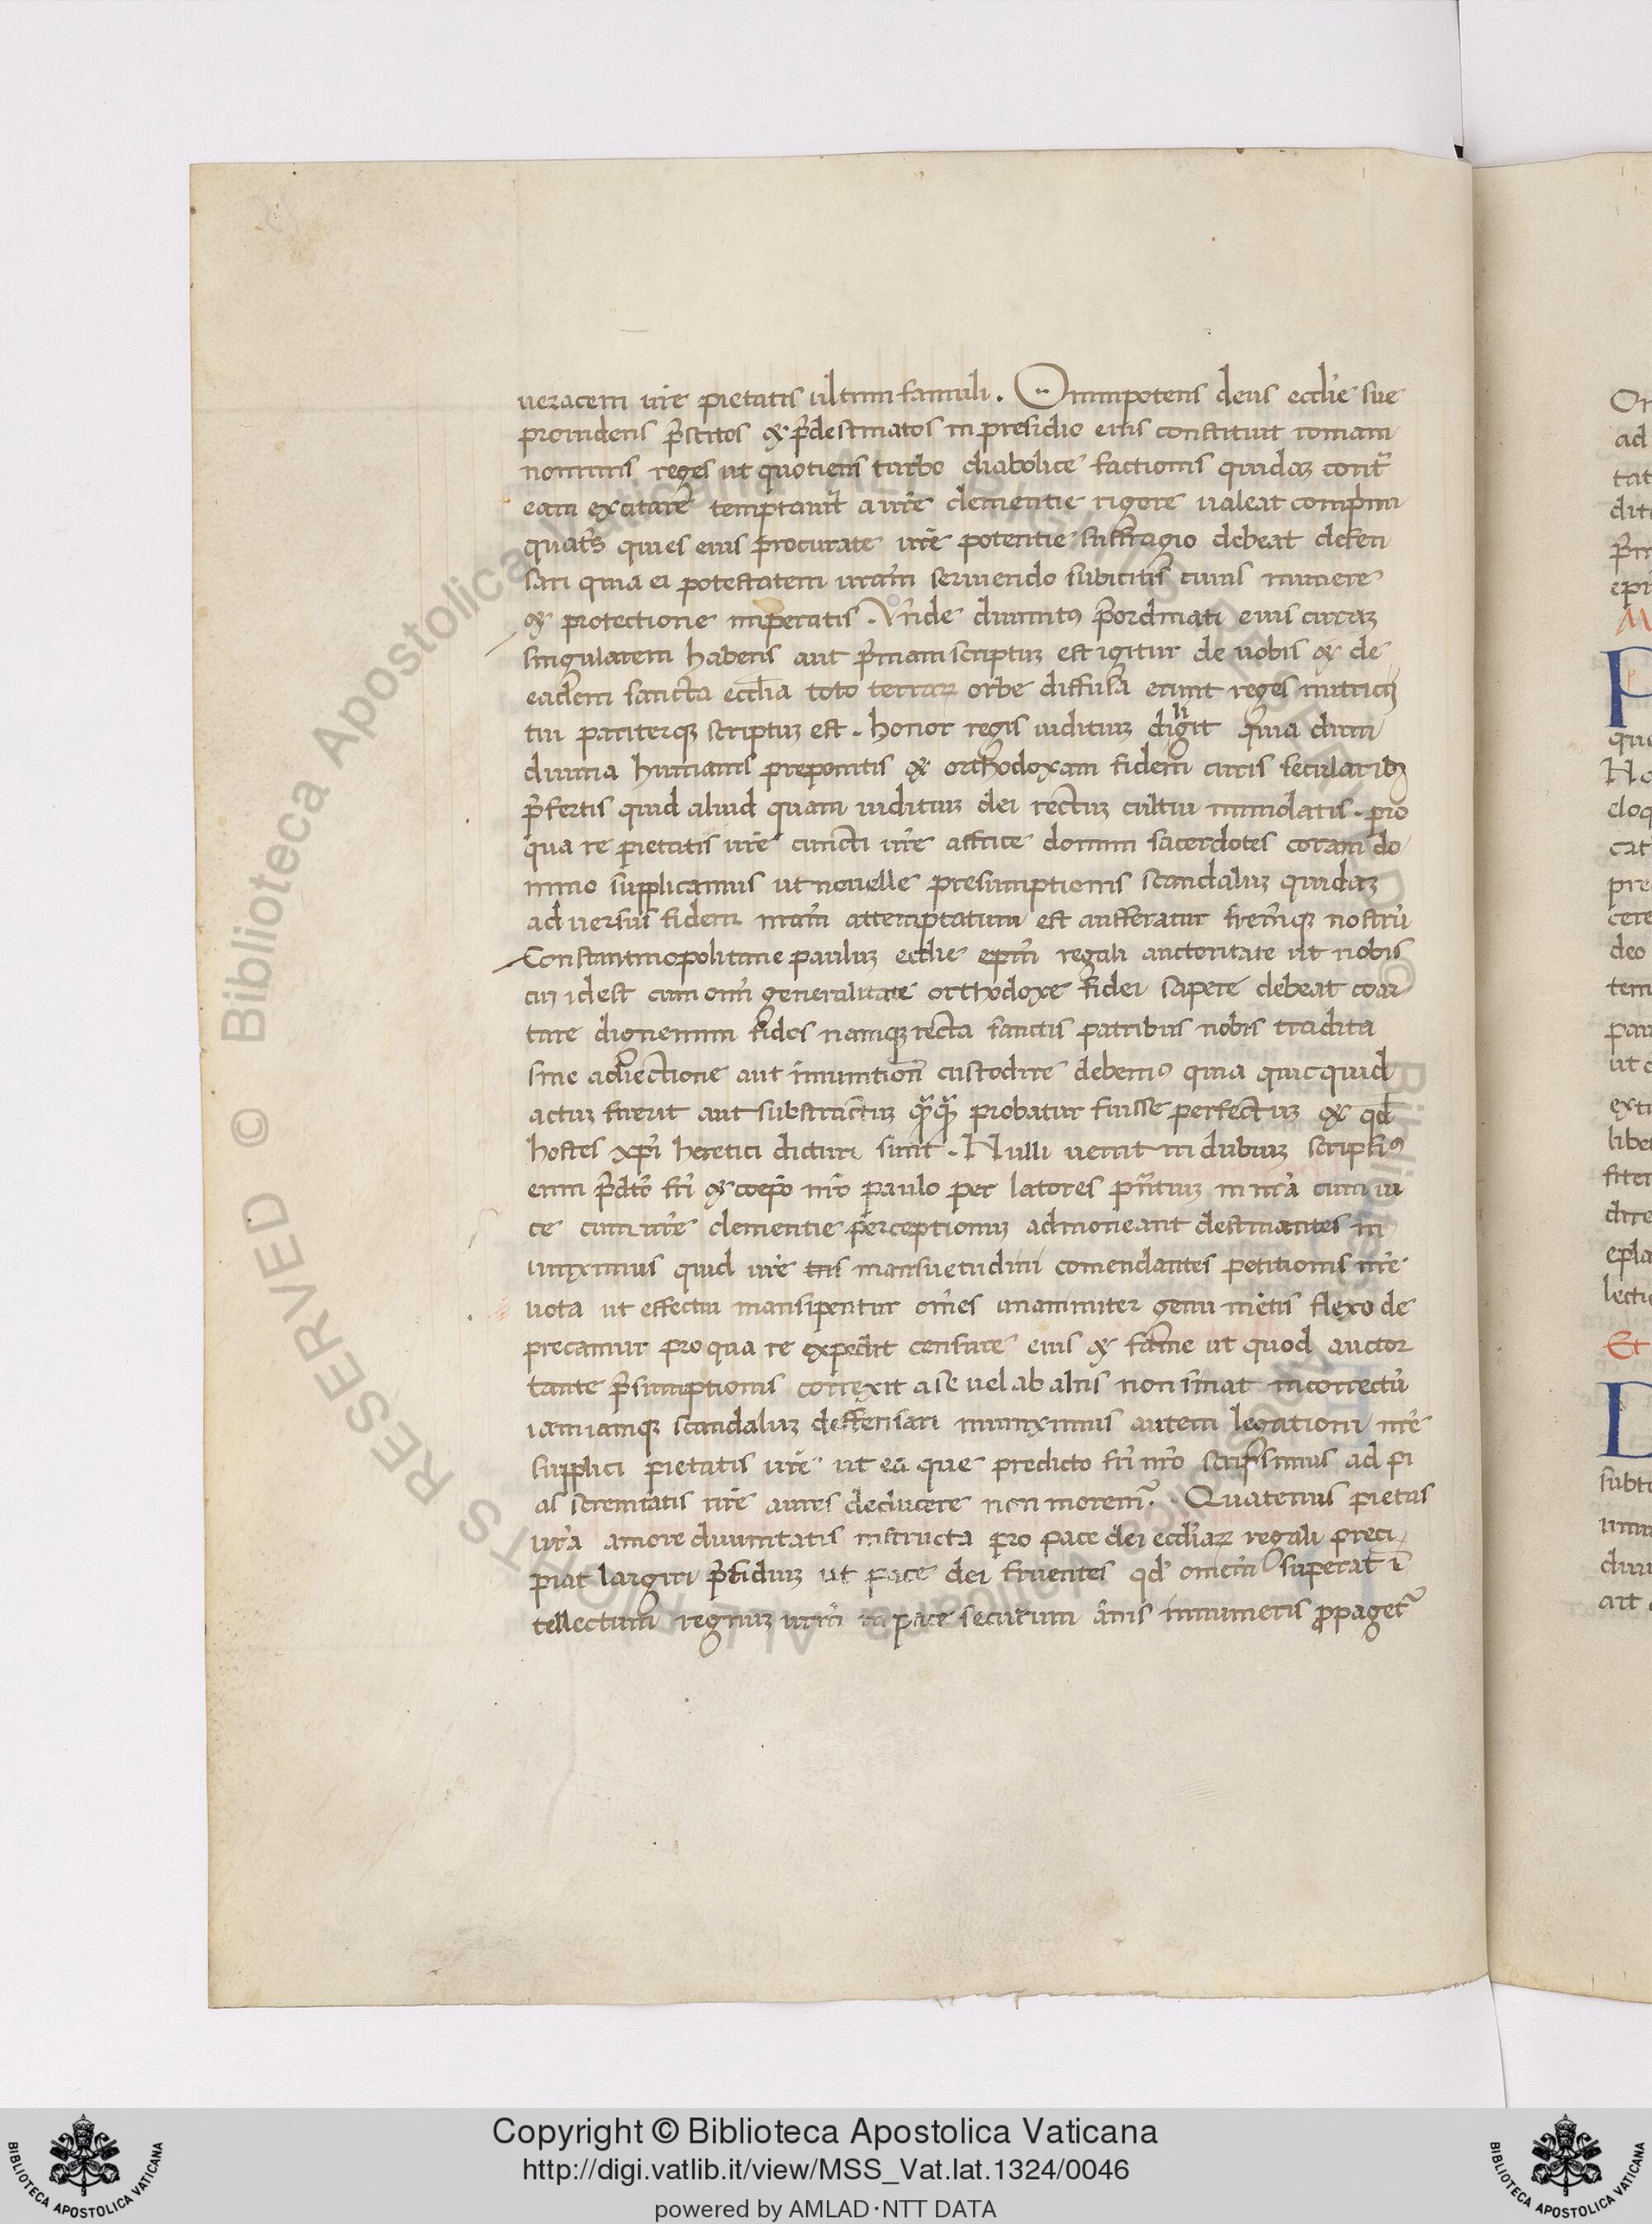 ueracem ur̃e pietatis ultimi famuli. Omnipotens deus eccl̃ie sue
prouidens p̃scitos & p̃destinatos in presidio eius constituit romani
nominis reges ut quotiens turbo diabolice factionis quidaʒ contr̃
eam excitare temptauit a ur̃e clementie rigore ualeat comp̃mi
quies eius procurate ur̃e potentie suffragio debeat defen
sari quia ei potestatem uram̃ seruiendo subicitis cuius munere
& protectione imperatis. Vnde diuinitꝰ p̃ordinati eius curaʒ
singularem habens aut p̃mam scriptuʒ est igitur de uobis & de
eadem sancta eccl̃ia toto terraꝝ orbe diffusa erunt reges nutricij
tui pariterqʒ scriptuʒ est. honor regis iudituʒ diligit quia dum
diuina humanis preponitis & orthodoxam fidem curis secularibʒ
p̃fertis quid aliud quam iudituʒ dei rectuʒ cultui inmolatis. pro
qua re pietatis ur̃e cuncti sacerdotes coram do
mino supplicamus ut nouelle presumptionis scandaluʒ quidaʒ
aduersus fidem nram̃ attemptatum est aufferatur frem̃qʒ nostrũ
Constantinopolitane pauluʒ eccl̃ie ep̃m regali auctoritate ut nobis
cũ idest cum om̃i generalitate orthodoxe fidei sapere debeat coar
tare dignemini fides namqʒ recta sanctis patribus nobis tradita
sine adiectione aut custodire debemꝰ quia quicquid
actuʒ fuerit aut substractuʒ probatur fuisse perfectuʒ & qd̃
hostes xp̃i heretici dicturi sunt. Nulli uenit in dubiuʒ scripsimꝰ
enim p̃dcõ fr̃i & coep̃o nrõ paulo per latores
ce cum ur̃e clementie perceptionuʒ admoneant destinantes in
iunximus quid ur̃e mansuetudini comendantes petitionis nr̃e
uota ut effectu mansipentur om̃es unanimiter genu mẽtis flexo de
precamur pro qua re expedit censure eius & fame ut quod auctor
p̃sumptionis correxit a se uel ab aliis non sinat incorrectũ
iamiamqʒ scandaluʒ deffensari iniunximus autem legationi nr̃e
supplici pietatis ur̃e ut ea que predicto fr̃i nr̃o scripsimus ad pi
as serenitatis ur̃e aures deducere non morent̃. Quatenus pietas
ur̃a amore diuinitatis instructa pro pace dei eccl̃iaꝝ regali preci
piat largiri p̃sidiuʒ ut pace dei fruentes qd̃ omem̃ superat ĩ
tellectum regnuʒ urm̃ in pace securum ãnis innumeris ꝓpaget̃
Copyright © Biblioteca Apostolica Vaticana
http://digi.vatlib.it/view/MSS_Vat.lat.1324/0046
powered by AMLAD·NTT DATA